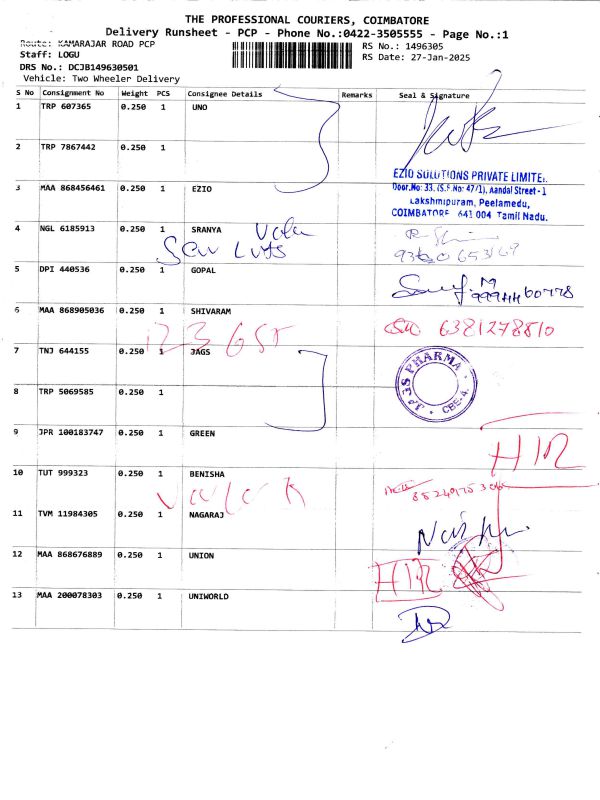 THE PROFESSIONAL COURIERS, COIMBATORE
Delivery Runsheet - PCP - Phone No.:0422-3505555 - Page No.:1
Route: KAMARAJAR ROAD PCP
RS No.: 1496305
Staff: LOGU
RS Date: 27-Jan-2025
DRS No.: DCJB149630501
Vehicle: Two Wheeler Delivery
S No Consignment No Weight PCS Consignee Details Remarks Seal & Signature
1 TRP 607365 0.250 1 UNO
2 TRP 7867442 0.250 1
EZIO SOLUTIONS PRIVATE LIMITED.
Door.No: 33, (S.F No: 47/1), Aandal Street - 1
Lakshmipuram, Peelamedu,
COIMBATORE 641 004 Tamil Nadu.
3 MAA 868456461 0.250 1 EZIO
4 NGL 6185913 0.250 1 SRANYA
5 DPI 440536 0.250 1 GOPAL
6 MAA 868905036 0.250 1 SHIVARAM
6381278810
7 TNJ 644155 0.250 1 JAGS
JAGS PHARMA CBE-4.
8 TRP 5069585 0.250 1
9 JPR 100183747 0.250 1 GREEN
10 TUT 999323 0.250 1 BENISHA
11 TVM 11984305 0.250 1 NAGARAJ
12 MAA 868676889 0.250 1 UNION
13 MAA 200078303 0.250 1 UNIWORLD